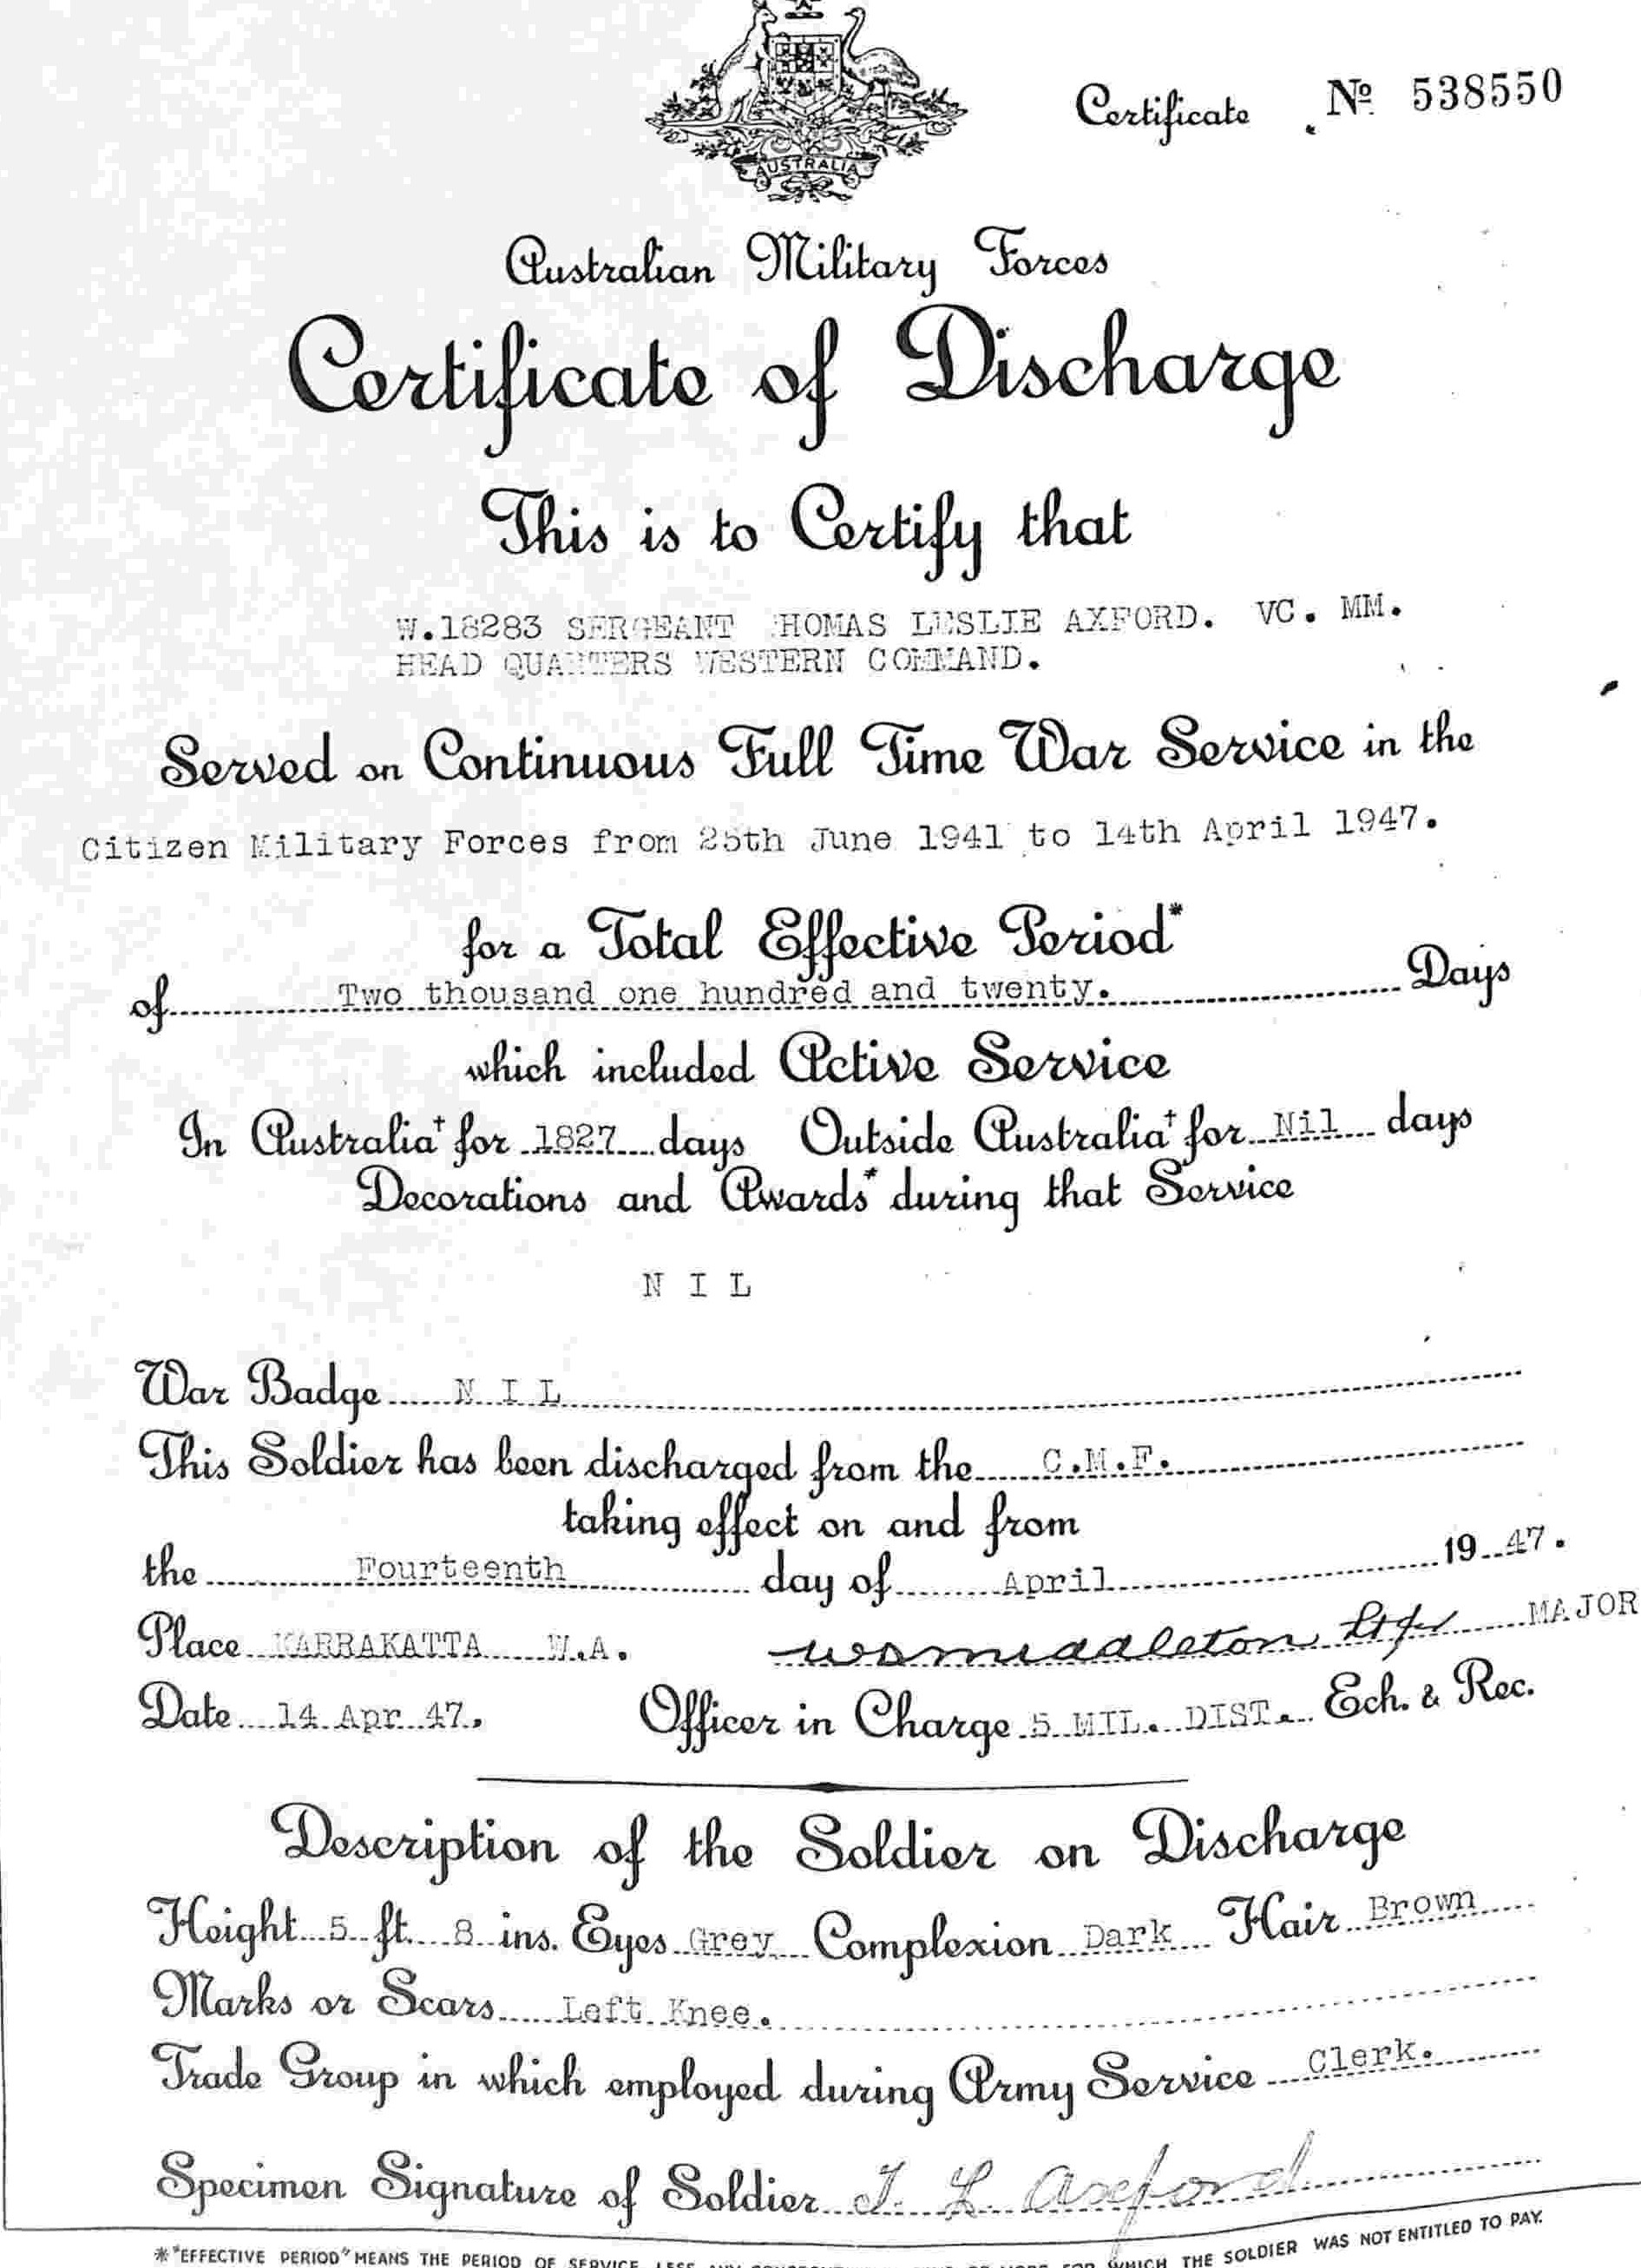 AUSTRALIA
Certificate No 538550
Australian Military Forces
Certificate of Discharge
This is to Certify that
W.18283 SERGEANT HOMAS LESLIE AXFORD. VC. MM.
HEAD QUARTERS WESTERN COMMAND.
Served on Continuous Full Time War Service in the
Citizen Military Forces from 25th June 1941 to 14th April 1947.
for a Total Effective Period*
of Two thousand one hundred and twenty. Days
which included Active Service
In Australia† for 1827 days Outside Australia† for Nil days
Decorations and Awards* during that Service
N I L
War Badge N I L
This Soldier has been discharged from the C.M.F.
taking effect on and from
the Fourteenth day of April 19 47.
Place KARRAKATTA W.A. MAJOR
Date 14 Apr 47. Officer in Charge 5 MIL. DIST. Ech. & Rec.
Description of the Soldier on Discharge
Height 5 ft. 8 ins. Eyes Grey Complexion Dark Hair Brown
Marks or Scars Left Knee.
Trade Group in which employed during Army Service Clerk.
Specimen Signature of Soldier T. L. Axford
*"EFFECTIVE PERIOD" MEANS THE PERIOD OF SERVICE LESS WHICH THE SOLDIER WAS NOT ENTITLED TO PAY.